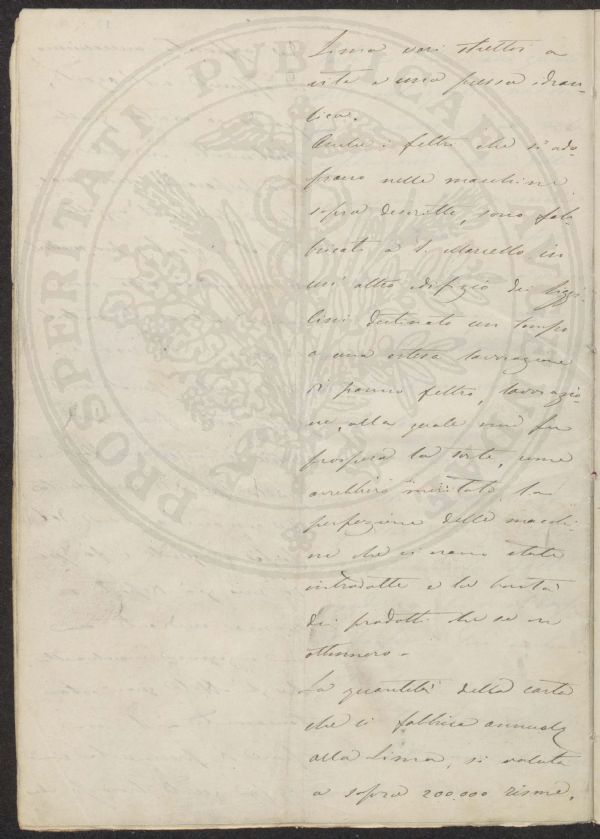 Lima vari strettoi a
vite e una pressa idrau-
lica.
Anche i feltri che si ado-
prano nelle macchine
sopra descritte, sono fab-
bricati a S. Marcello in
un' altro edifizio dei Cini
destinato un tempo
a una estesa lavorazione
di panno feltro, lavorazio-
ne, alla quale non fu
prospera la sorte, come
avrebbero meritato la
perfezione delle macchi-
ne che vi erano state
introdotte e la bontà
dei prodotti che se ne
ottennero.
La quantità della carta
che si fabbrica annual.
alla Lima, si valuta
a sopra 200.000 risme,
PROSPERITATI PVBLICAE AVGENDAE